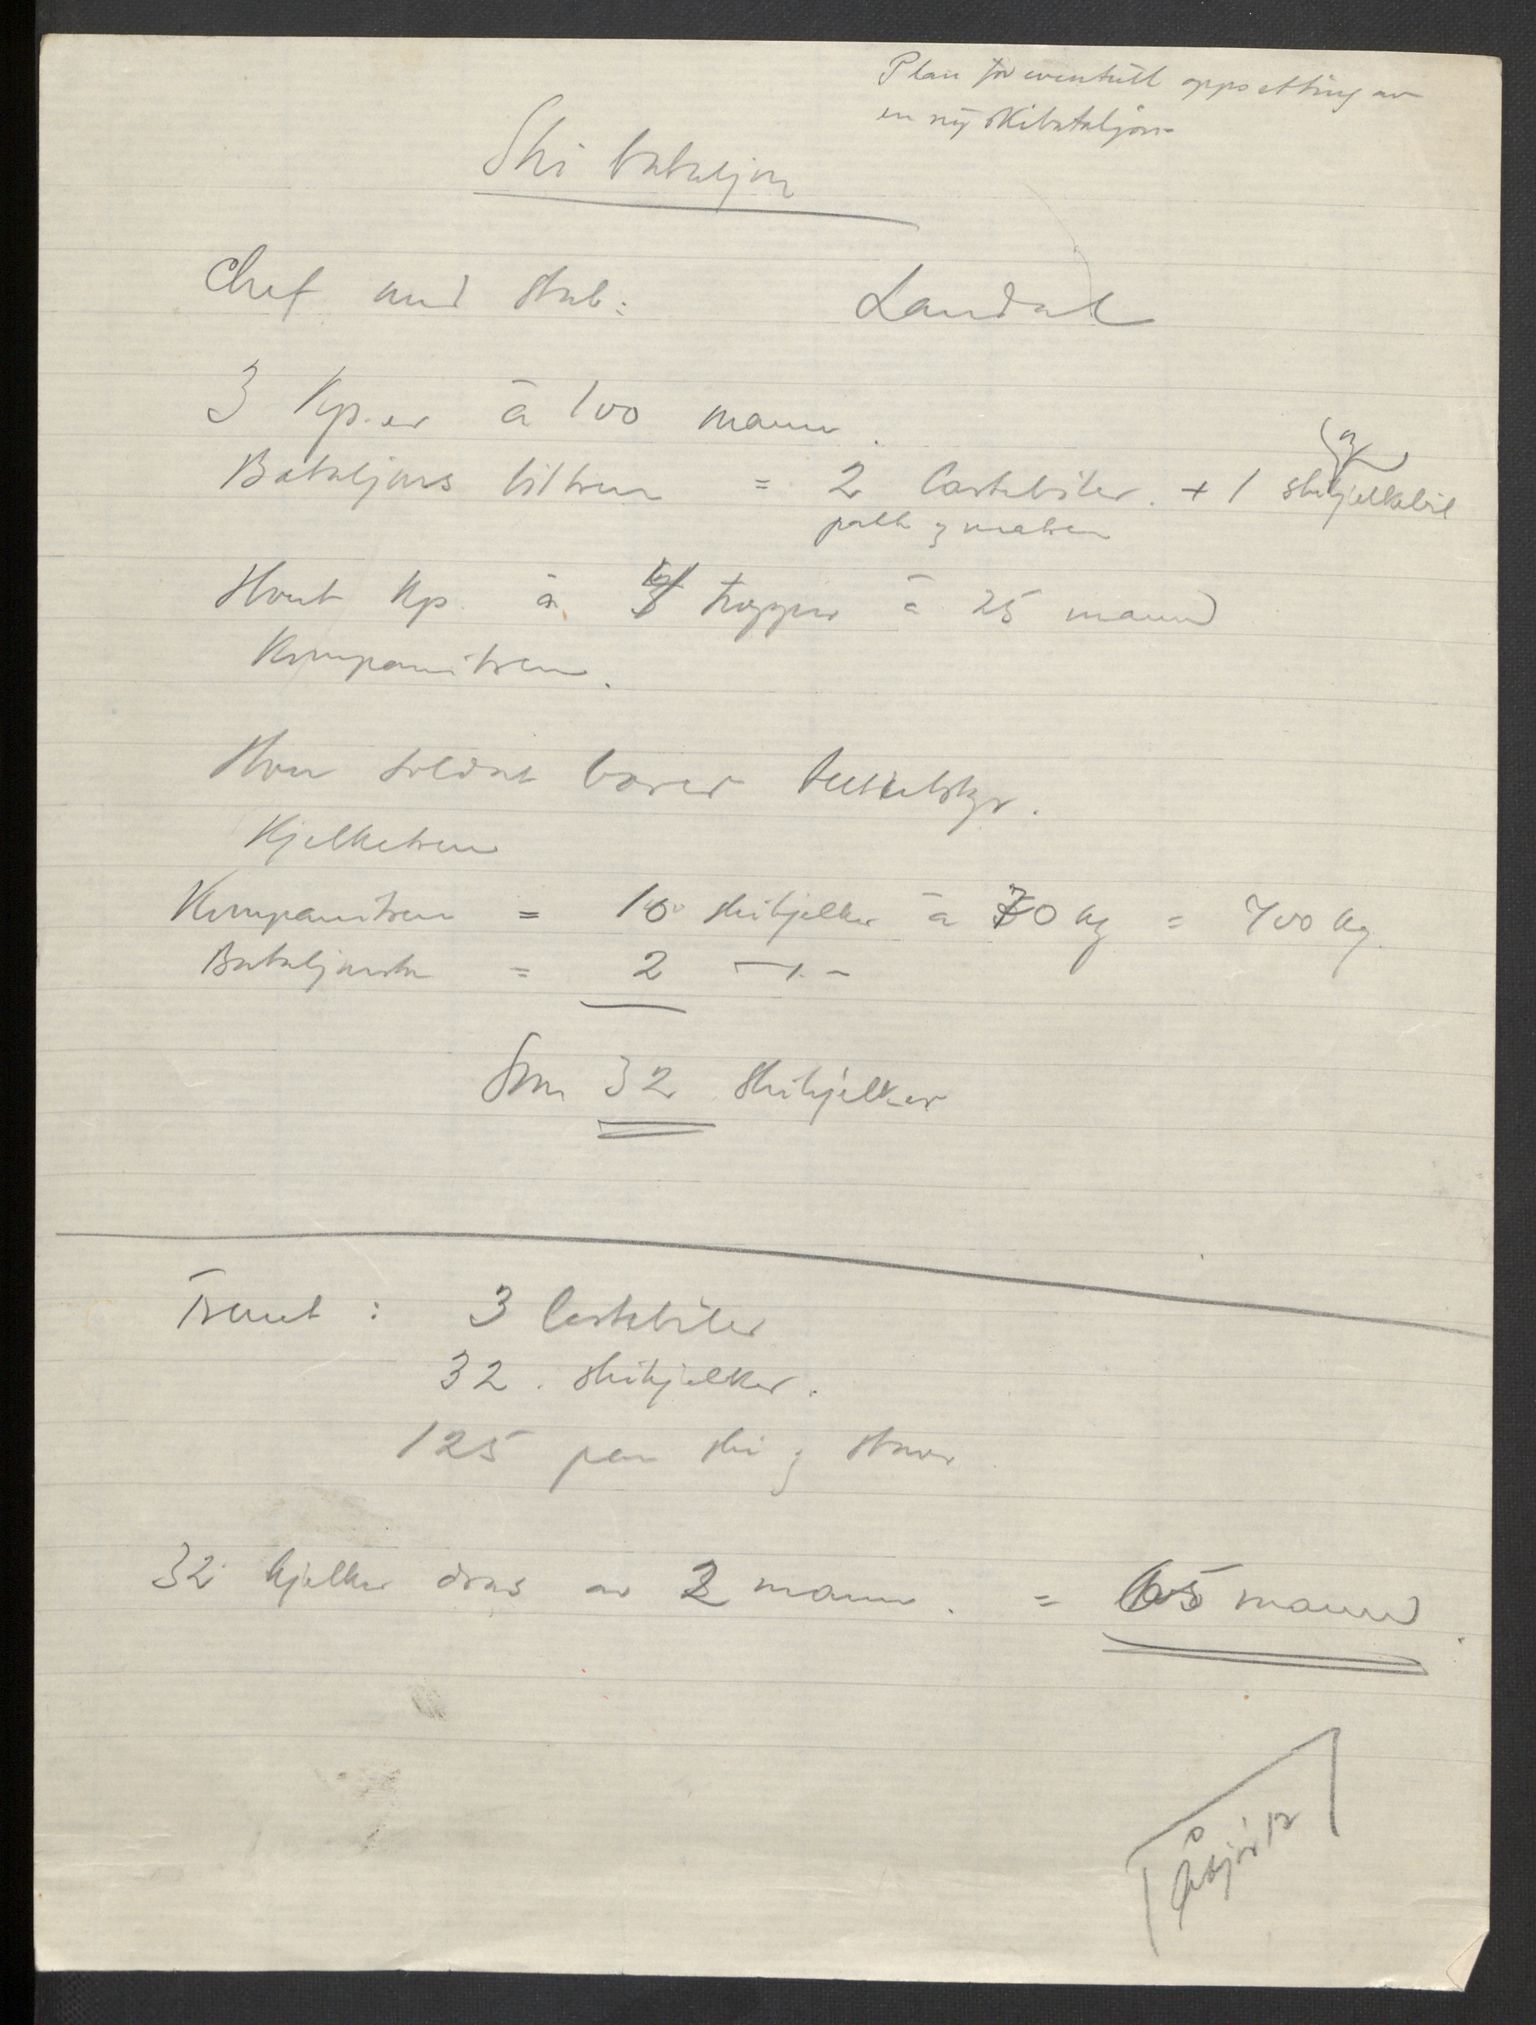 Plan for eventuell oppsetting av
en ny skibataljon
Ski bataljon
Chef med stab: Landal
3 Kp.er à 100 mann.
Bataljons biltren = 2 lastebiler. + 1 skikjelkebil
og maten
Hvert Kp. à 4 tropper à 25 mann
Kompanitren.
Hver soldat bærer
Kjelketren
Kompanitren = 10 skikjelker à 70 kg = 700 kg.
= 2 —"—
Sum 32 skikjelker
Trenet: 3 lastebiler
32. skikjelker.
125 par ski og staver
32 kjelker dras av 2 mann. = 65 mann.